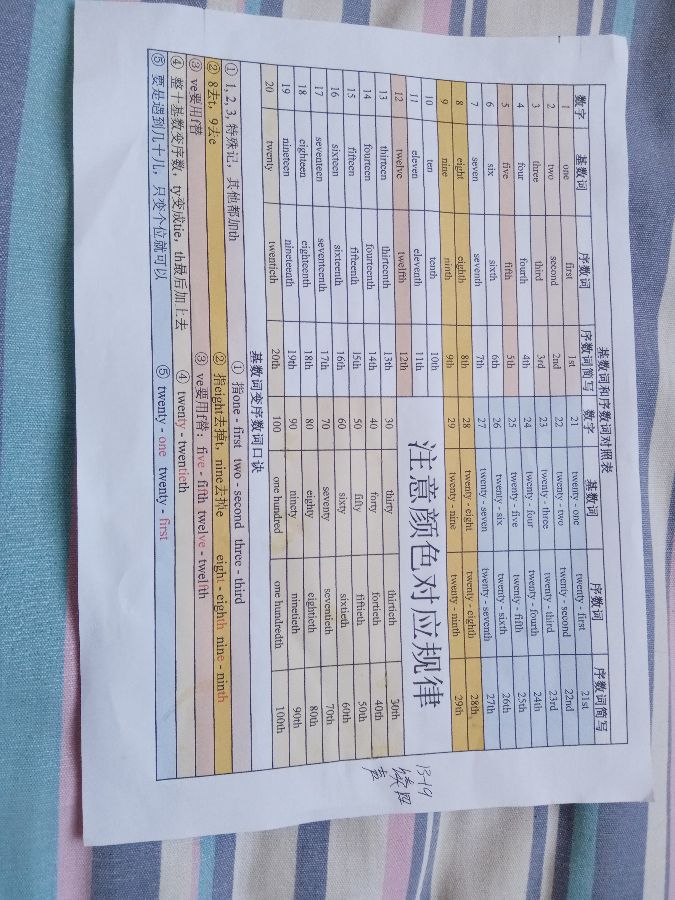 基数词和序数词对照表
数字 基数词 序数词 序数词简写 数字 基数词 序数词 序数词简写
1 one first 1st 21 twenty - one twenty - first 21st
2 two second 2nd 22 twenty - two twenty - second 22nd
3 three third 3rd 23 twenty - three twenty - third 23rd
4 four fourth 4th 24 twenty - four twenty - fourth 24th
5 five fifth 5th 25 twenty - five twenty - fifth 25th
6 six sixth 6th 26 twenty - six twenty - sixth 26th
7 seven seventh 7th 27 twenty - seven twenty - seventh 27th
8 eight eighth 8th 28 twenty - eight twenty - eighth 28th
9 nine ninth 9th 29 twenty - nine twenty - ninth 29th
10 ten tenth 10th
11 eleven eleventh 11th
12 twelve twelfth 12th
注意颜色对应规律
13 thirteen thirteenth 13th 30 thirty thirtieth 30th
14 fourteen fourteenth 14th 40 forty fortieth 40th
15 fifteen fifteenth 15th 50 fifty fiftieth 50th
16 sixteen sixteenth 16th 60 sixty sixtieth 60th
17 seventeen seventeenth 17th 70 seventy seventieth 70th
18 eighteen eighteenth 18th 80 eighty eightieth 80th
19 nineteen nineteenth 19th 90 ninety ninetieth 90th
20 twenty twentieth 20th 100 one hundred one hundredth 100th
基数词变序数词口诀
① 1, 2, 3, 特殊记，其他都加th ① 指one - first two - second three - third
② 8去t，9去e ② 指eight去掉t，nine去掉e eight - eighth nine - ninth
③ ve要用f替 ③ ve要用f替： five - fifth twelve - twelfth
④ 整十基数变序数，ty变成tie，th最后加上去 ④ twenty - twentieth
⑤ 要是遇到几十几，只变个位就可以 ⑤ twenty - one twenty - first
13-19